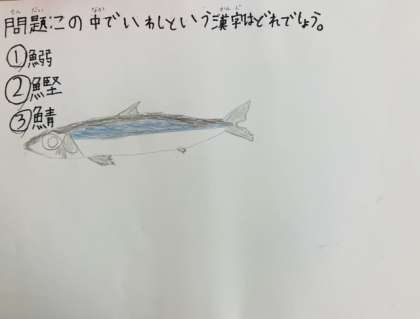 問題:この中でいわしという漢字はどれでしょう。
①鰯
②鰹
③鯖